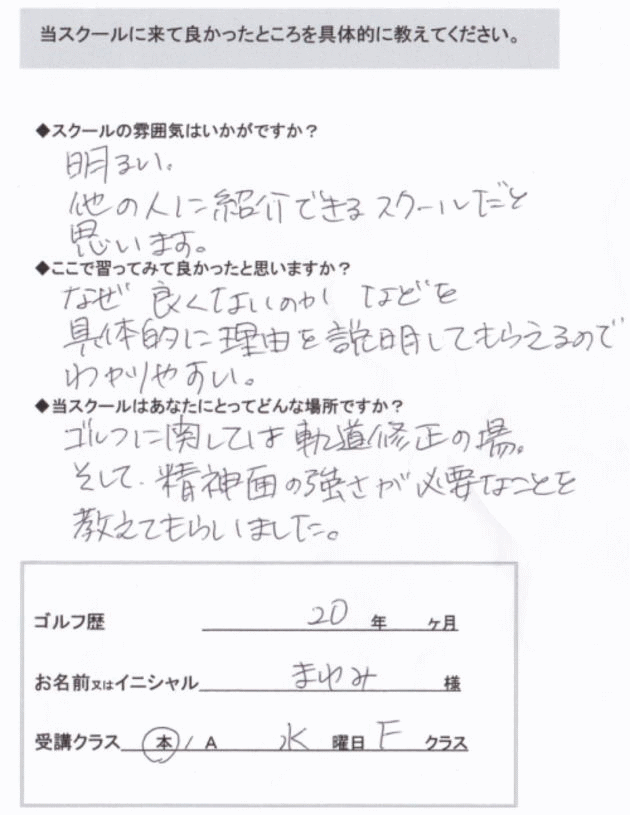 当スクールに来て良かったところを具体的に教えてください。
◆スクールの雰囲気はいかがですか？
明るい。
他の人に紹介できるスクールだと
思います。
◆ここで習ってみて良かったと思いますか？
なぜ良くないのか などを
具体的に理由を説明してもらえるので
わかりやすい。
◆当スクールはあなたにとってどんな場所ですか？
ゴルフに関しては軌道修正の場。
そして、精神面の強さが必要なことを
教えてもらいました。
ゴルフ歴 20 年 ヶ月
お名前又はイニシャル まゆみ 様
受講クラス 本 / A 水 曜日 F クラス